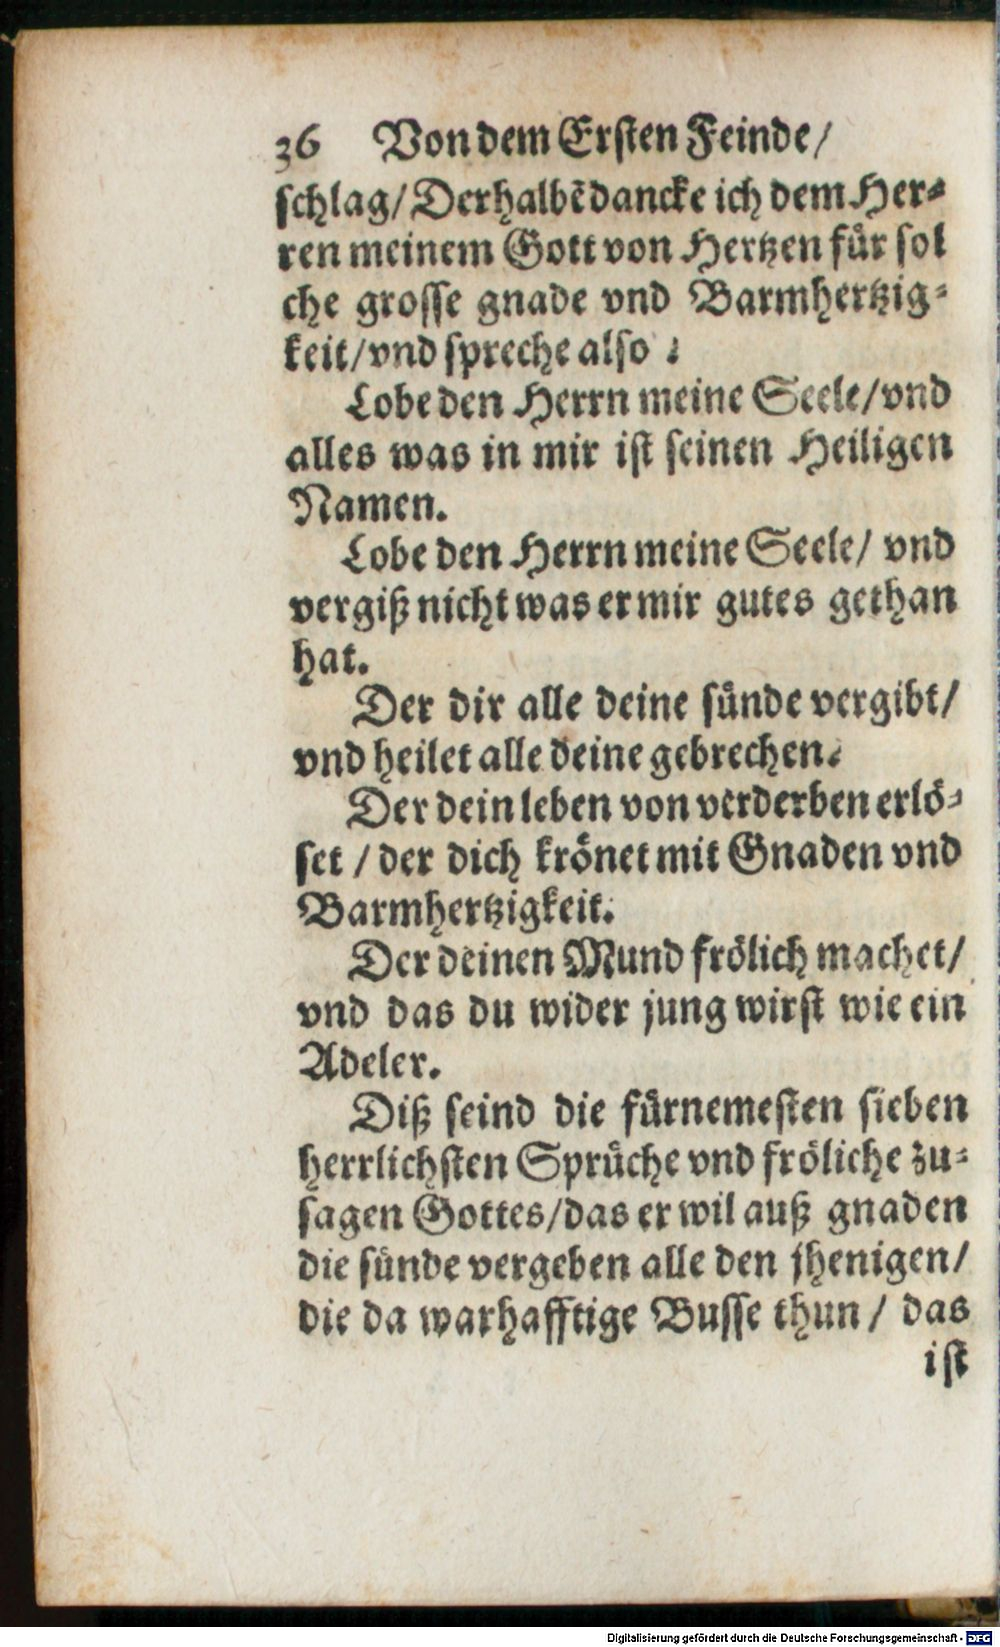 36 Von dem Ersten Feinde/
schlag/Derhalbē dancke ich dem Her-
ren meinem Gott von Hertzen für sol
che grosse gnade vnd Barmhertzig-
keit/vnd spreche also :
Lobe den Herrn meine Seele/vnd
alles was in mir ist seinen Heiligen
Namen.
Lobe den Herrn meine Seele/ vnd
vergiß nicht was er mir gutes gethan
hat.
Der dir alle deine sünde vergibt/
vnd heilet alle deine gebrechen.
Der dein leben von verderben erlö-
set / der dich krönet mit Gnaden vnd
Barmhertzigkeit.
Der deinen Mund frölich machet/
vnd das du wider jung wirst wie ein
Adeler.
Diß seind die fürnemesten sieben
herrlichsten Sprüche vnd fröliche zu-
sagen Gottes/das er wil auß gnaden
die sünde vergeben alle den jhenigen/
die da warhafftige Busse thun / das
ist
Digitalisierung gefördert durch die Deutsche Forschungsgemeinschaft - DFG